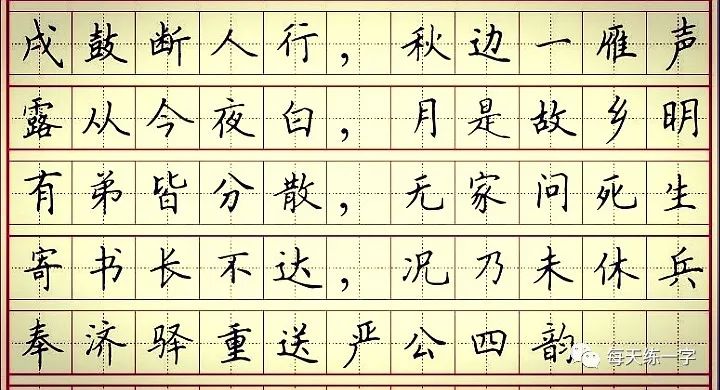 戍鼓断人行，秋边一雁声
露从今夜白，月是故乡明
有弟皆分散，无家问死生
寄书长不达，况乃未休兵
奉济驿重送严公四韵
每天练一字